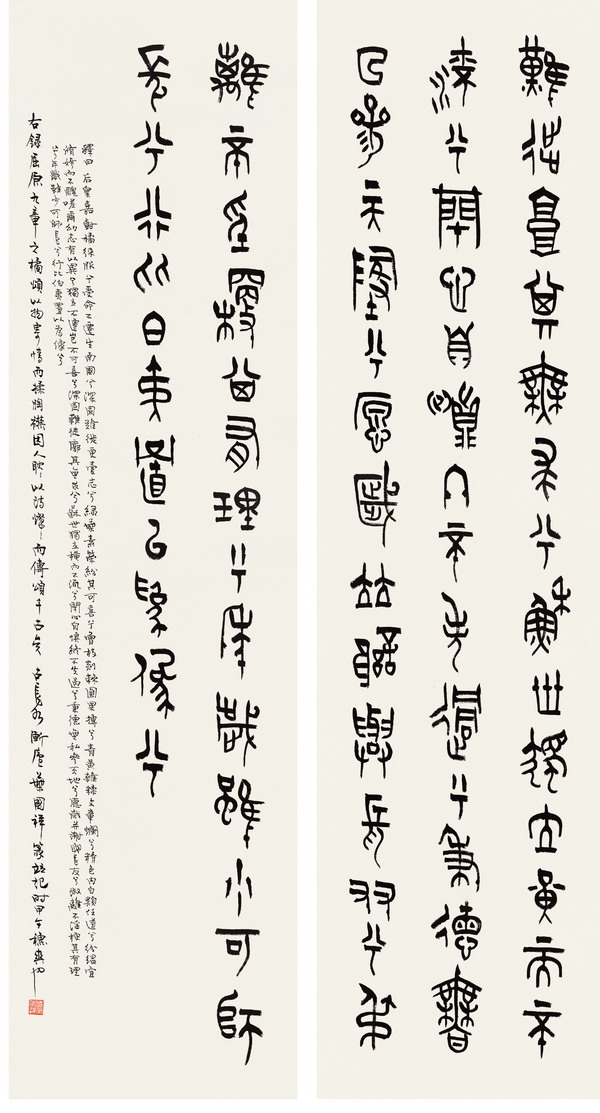 難徙廓其無求兮穌世獨立黃而不
流兮閉心自慎冬不失過兮秉德無
厶參天墬兮愿歲竝謝與長友兮弟
離不淫梗其有理兮年歲雖少可師
長兮行比白夷置㠯為像兮
釋曰 后皇嘉樹橘徠服兮受命不遷生南國兮深固難徙更壹志兮綠葉素榮紛其可喜兮曾枝剡棘圜果摶兮青黃雜糅文章爛兮精色內白類任道兮紛緼宜
脩姱而不醜嗟爾幼志有以異兮獨立不遷豈不可喜兮深固難徙廓其無求兮蘇世獨立橫而不流兮閉心自慎終不失過兮秉德無私參天地兮願歲并謝與長友兮淑離不淫梗其有理
兮年歲雖少可師長兮行比伯夷置以為像兮
右錄屈原九章之橘頌以物寄情而揉陶襟因人歌以詩而傳頌千古矣